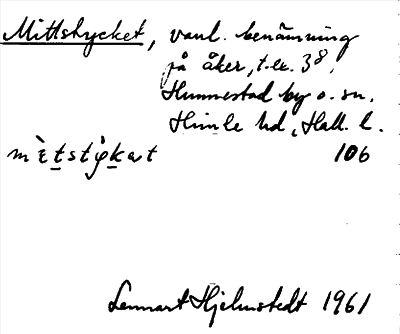 Mittstycket, vanl. benämning
på åker, t.ex. 38,
Hunnestad by o. sn.
Himle hd, Hall. l.
mètstỳkət 106
Lennart Hjelmstedt 1961